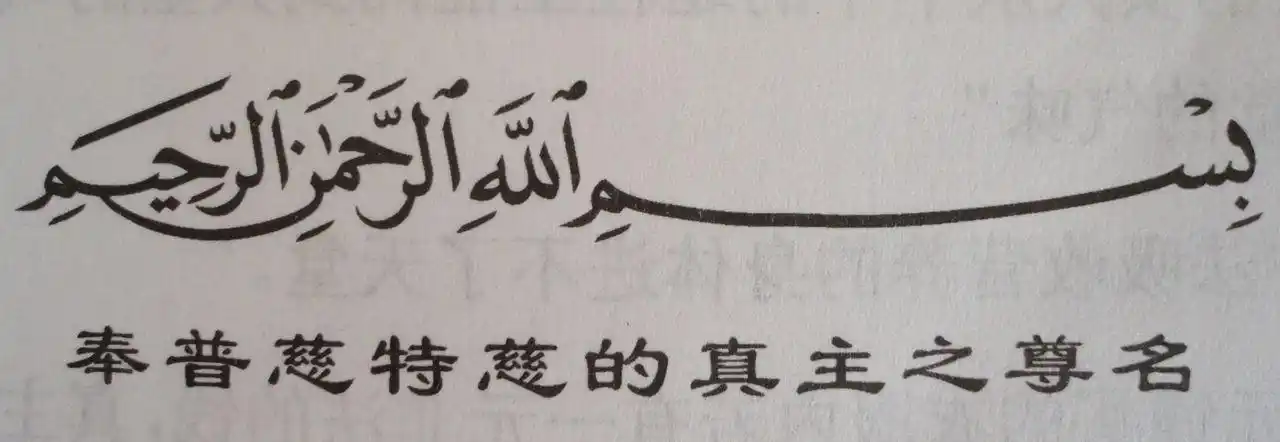 بِسْمِ اللَّهِ الرَّحْمَٰنِ الرَّحِيمِ
奉普慈特慈的真主之尊名